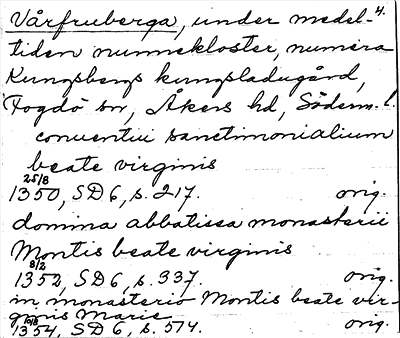 4.
Vårfruberga, under medel-
tiden nunnekloster, numera
Kungsbergs kungsladugård,
Fogdö sn, Åkers hd, Söderm. l.
conventui sanctimonialium
beate virginis
25/8
1350, SD 6, s. 217. orig.
domina abbatissa monasterii
Montis beate virginis
8/2
1352, SD 6, s. 337. orig.
in monasterio Montis beate vir-
ginis Marie
10/8
1354, SD 6, s. 574. orig.